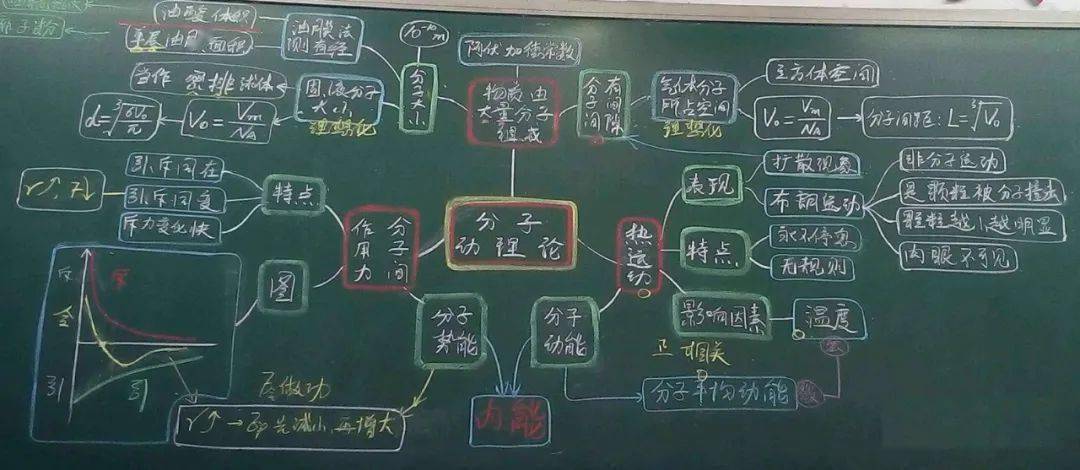 油酸体积
单层油膜面积
油膜法
测直径
10⁻¹⁰m
分子大小
固液分子
大小
理想化
当作 密排球体
V₀=Vm/NA
d=³√6V₀/π
阿伏加德罗常数
物质由
大量分子
组成
分子间隙
有间隙
气体分子
所占空间
理想化
立方体空间
V₀=Vm/NA
分子间距:L=³√V₀
分子
动理论
分子间
作用力
特点
引、斥同在
引、斥同变
斥力变化快
r↑ F↓
图
斥
合
引
斥
引
分子
势能
合做功
r↑→Ep先减小,再增大
热运动
表现
扩散现象
布朗运动
非分子运动
是颗粒被分子撞击
颗粒越小越明显
肉眼不可见
特点
永不停息
无规则
影响因素
温度
正相关
分子
动能
分子平均动能
内能